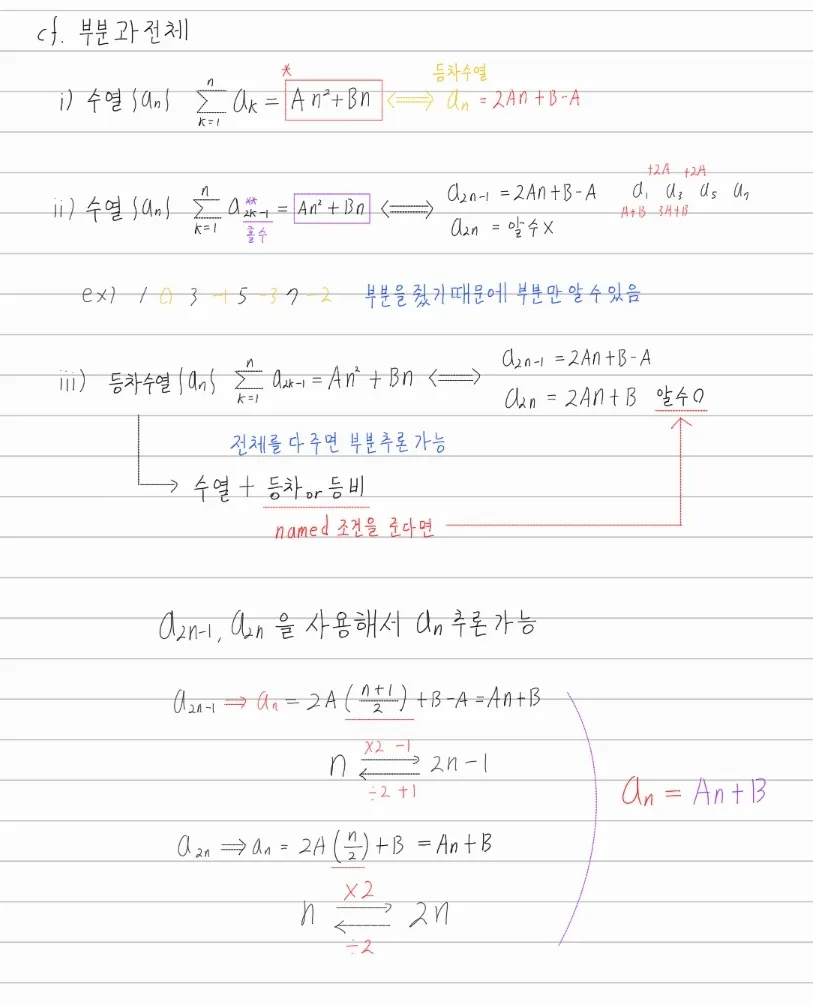 cf. 부분과전체
* 등차수열
i) 수열 {aₙ} ∑_{k=1}^{n} aₖ = An²+Bn ⟺ aₙ = 2An+B-A
ii) 수열 {aₙ} ∑_{k=1}^{n} a_{2k-1} = An² + Bn ⟺ a_{2n-1} = 2An+B-A a₁ a₃ a₅ a₇
** 홀수 +2A +2A
A+B 3A+B
a_{2n} = 알수X
ex) 1 0 3 -1 5 -3 7 -2 부분을 줬기때문에 부분만 알 수 있음
iii) 등차수열 {aₙ} ∑_{k=1}^{n} a_{2k-1} = An² + Bn ⟺ a_{2n-1} = 2An+B-A
a_{2n} = 2An+B 알수O
전체를 다 주면 부분추론 가능
→ 수열 + 등차 or 등비
named 조건을 준다면
a_{2n-1}, a_{2n} 을 사용해서 aₙ 추론가능
a_{2n-1} ⇒ aₙ = 2A(\frac{n+1}{2}) +B-A = An+B
×2 -1
n ⇄ 2n-1
÷2 +1
aₙ = An+B
a_{2n} ⇒ aₙ = 2A(\frac{n}{2})+B = An+B
×2
n ⇄ 2n
÷2